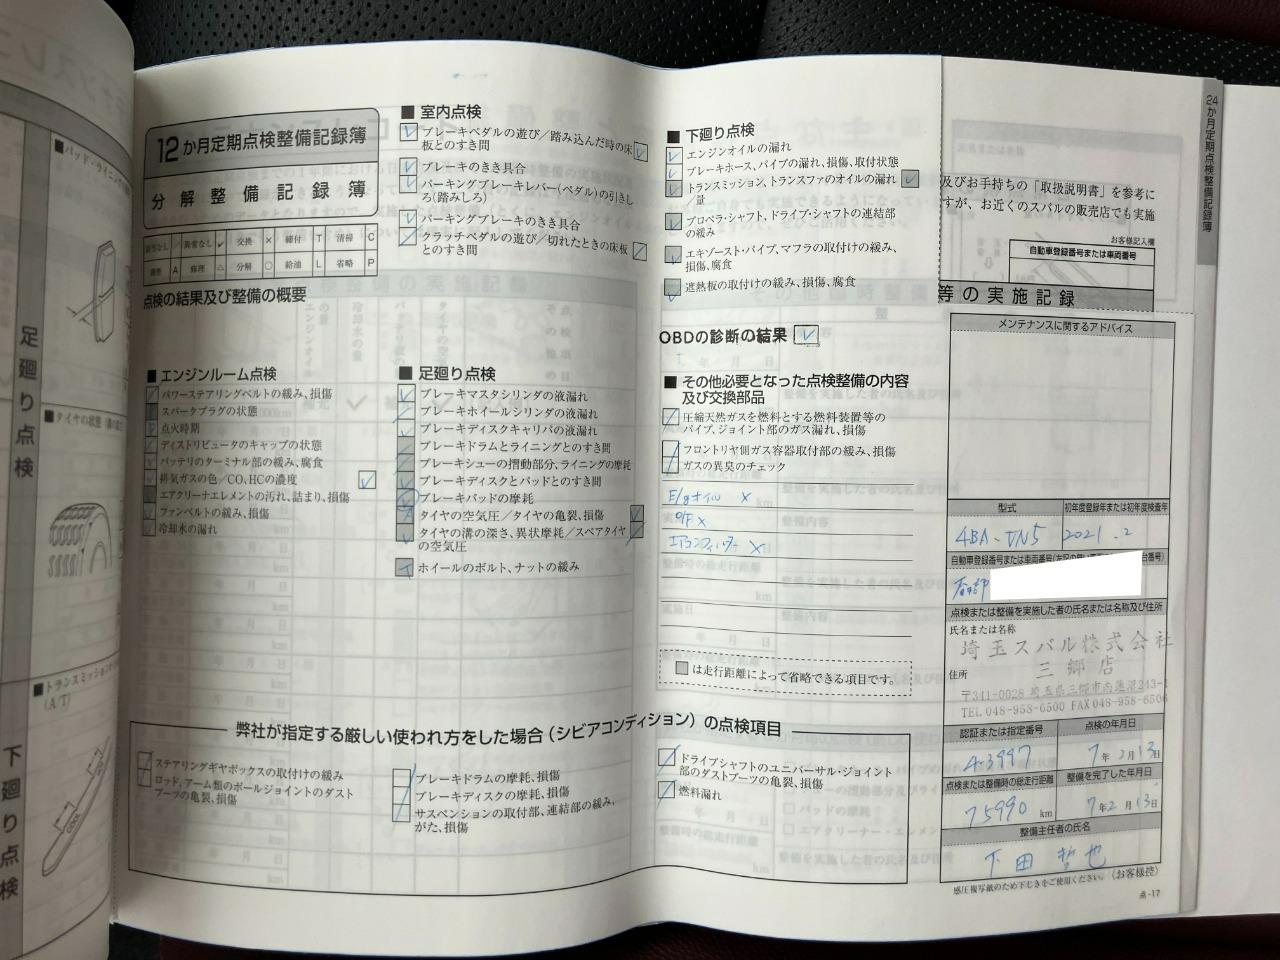 12か月定期点検整備記録簿
分解整備記録簿
異常なし レ 交換 × 締付 T 清掃 C
調整 A 修理 △ 分解 ○ 給油 L 省略 P
点検の結果及び整備の概要
■ エンジンルーム点検
パワーステアリングベルトの緩み、損傷
スパークプラグの状態
点火時期
ディストリビュータのキャップの状態
バッテリのターミナル部の緩み、腐食
排気ガスの色/CO、HCの濃度
エアクリーナエレメントの汚れ、詰まり、損傷
ファンベルトの緩み、損傷
冷却水の漏れ
■ 室内点検
ブレーキペダルの遊び/踏み込んだ時の床
板とのすき間
ブレーキのきき具合
パーキングブレーキレバー(ペダル)の引きし
ろ(踏みしろ)
パーキングブレーキのきき具合
クラッチペダルの遊び/切れたときの床板
とのすき間
■ 足廻り点検
ブレーキマスタシリンダの液漏れ
ブレーキホイールシリンダの液漏れ
ブレーキディスクキャリパの液漏れ
ブレーキドラムとライニングとのすき間
ブレーキシューの摺動部分、ライニングの摩耗
ブレーキディスクとパッドとのすき間
ブレーキパッドの摩耗
タイヤの空気圧/タイヤの亀裂、損傷
タイヤの溝の深さ、異状摩耗/スペアタイヤ
の空気圧
ホイールのボルト、ナットの緩み
■ 下廻り点検
エンジンオイルの漏れ
ブレーキホース、パイプの漏れ、損傷、取付状態
トランスミッション、トランスファのオイルの漏れ
/量
プロペラ・シャフト、ドライブ・シャフトの連結部
の緩み
エキゾースト・パイプ、マフラの取付けの緩み、
損傷、腐食
遮熱板の取付けの緩み、損傷、腐食
OBDの診断の結果
■ その他必要となった点検整備の内容
及び交換部品
圧縮天然ガスを燃料とする燃料装置等の
パイプ、ジョイント部のガス漏れ、損傷
フロントリヤ側ガス容器取付部の緩み、損傷
ガスの異臭のチェック
E/gオイル ×
O/F ×
エアコンフィルター ×
は走行距離によって省略できる項目です。
弊社が指定する厳しい使われ方をした場合(シビアコンディション)の点検項目
ステアリングギヤボックスの取付けの緩み
ロッド、アーム類のボールジョイントのダスト
ブーツの亀裂、損傷
ブレーキドラムの摩耗、損傷
ブレーキディスクの摩耗、損傷
サスペンションの取付部、連結部の緩み、
がた、損傷
ドライブシャフトのユニバーサル・ジョイント
部のダストブーツの亀裂、損傷
燃料漏れ
及びお手持ちの「取扱説明書」を参考に
すが、お近くのスバルの販売店でも実施
お客様記入欄
自動車登録番号または車両番号
等の実施記録
メンテナンスに関するアドバイス
型式 初年度登録年または初年度検査年
4BA-VN5 2021.2
春日部
点検または整備を実施した者の氏名または名称及び住所
氏名または名称
埼玉スバル株式会社
三郷店
住所
〒341-0028 埼玉県三郷市
TEL 048-958-6500 FAX 048-958-6506
認証または指定番号 点検の年月日
4-3997 7年2月13日
点検または整備時の総走行距離 整備を完了した年月日
75990 km 7年2月13日
整備主任者の氏名
下田 哲也
感圧複写紙のため下じきをご使用ください。 (お客様控)
点-17
24か月定期点検整備記録簿
足廻り点検
下廻り点検
■パッド・ライニング
■タイヤの状態
■トランスミッション
(A/T)
COOL